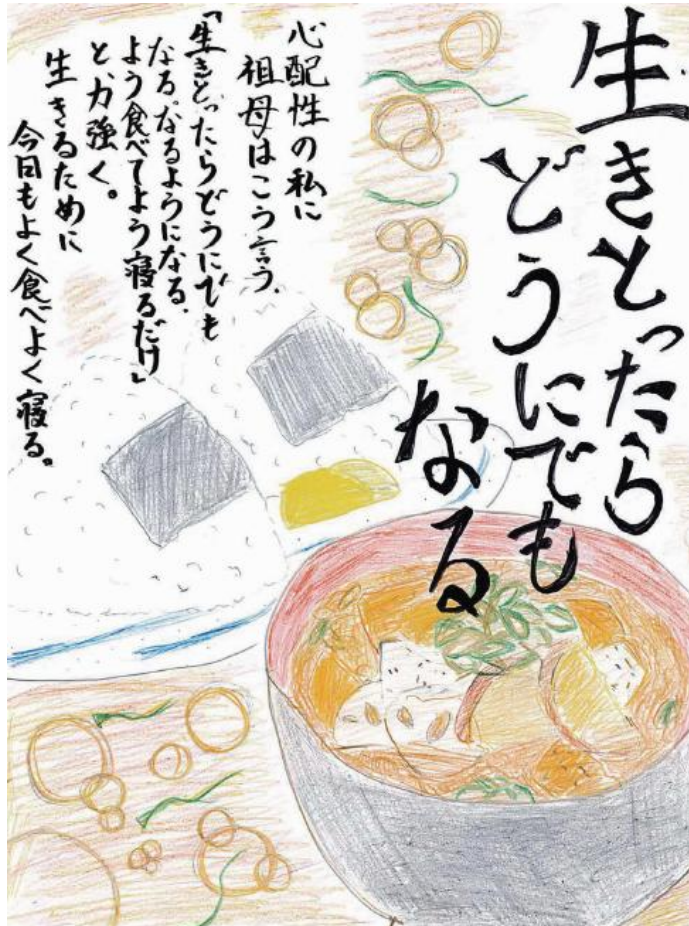 生きとったら
どうにでも
なる
心配性の私に
祖母はこう言う。
「生きとったらどうにでも
なる。なるようになる。
よう食べてよう寝るだけ」
と、力強く。
生きるために
今日もよく食べよく寝る。